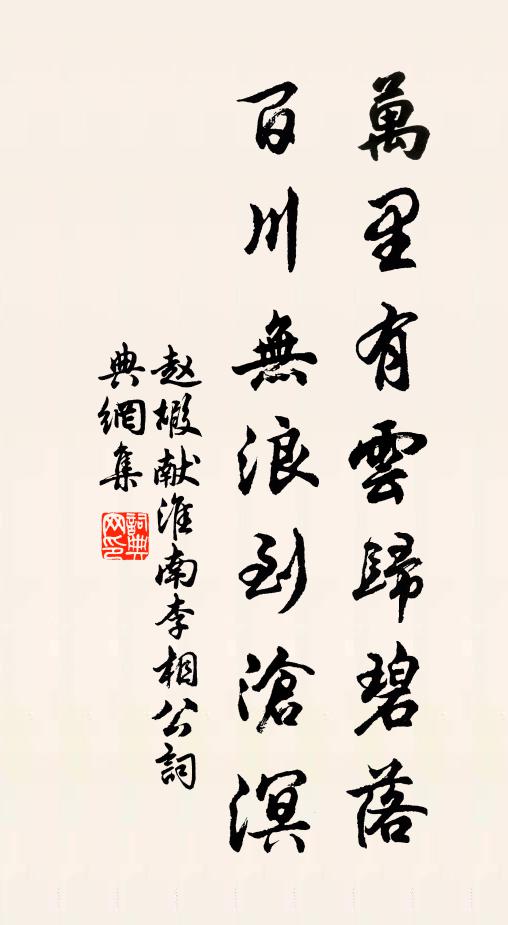 萬里有雲歸碧落
百川無浪到滄溟
赵嘏献淮南李相公詞
典網集
詞典
网印